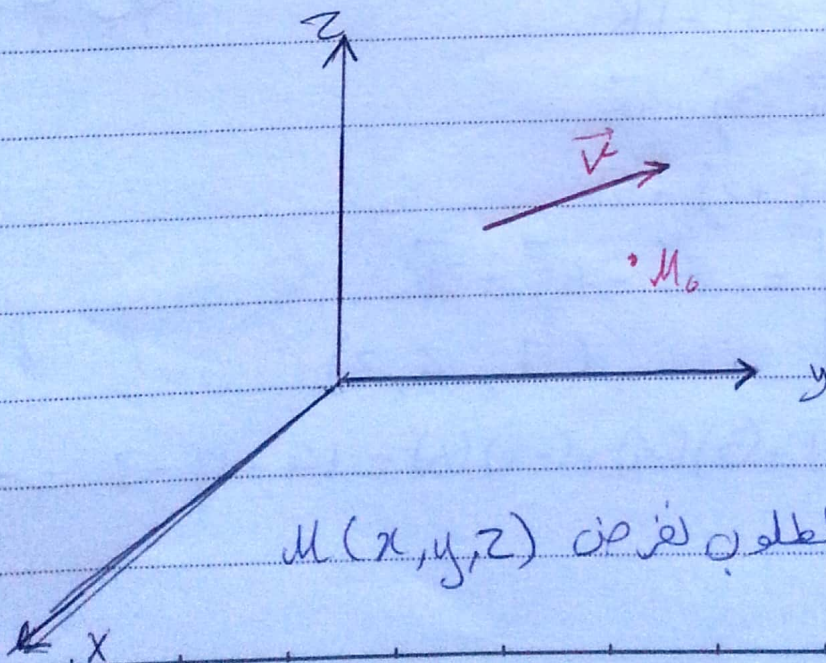 z
V
M₀
y
لطلوب نفرض M(x,y,z)
x